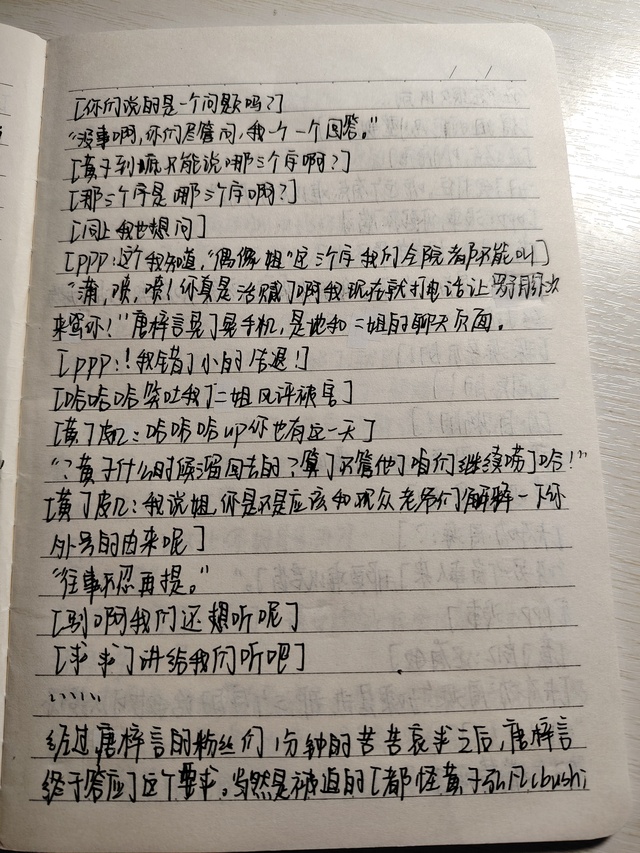 [你们说的是一个问题吗?]
“没事啊,你们尽管问,我一个一个回答。”
[黄子到底不能说哪三个字啊?]
[那三个字是哪三个字啊?]
[同上我也想问]
[PPP:这个我知道,“偶像姐”这三个字我们全院都不能叫]
“蒲,喷,喷!你真是治贼了啊我现在就打电话让
来骂你!”唐梓言晃了晃手机,是她和二姐的聊天页面。
[PPP:!我错了小的告退!]
[哈哈哈笑吐我了二姐风评被害]
[黄了皮几:哈哈哈up你也有这一天]
“?黄子什么时候溜回去的?算了不管他了咱们继续唠了哈!”
[黄了皮几:我说姐你是不是应该和观众老爷们解释一下你
外号的由来呢]
“往事不忍再提。”
[别啊我们还想听呢]
[求求了讲给我们听吧]
……
经过唐梓言的粉丝们1分钟的苦苦哀求之后,唐梓言
终于答应了这个要求。当然是被迫的[都怪黄子弘凡cbushi